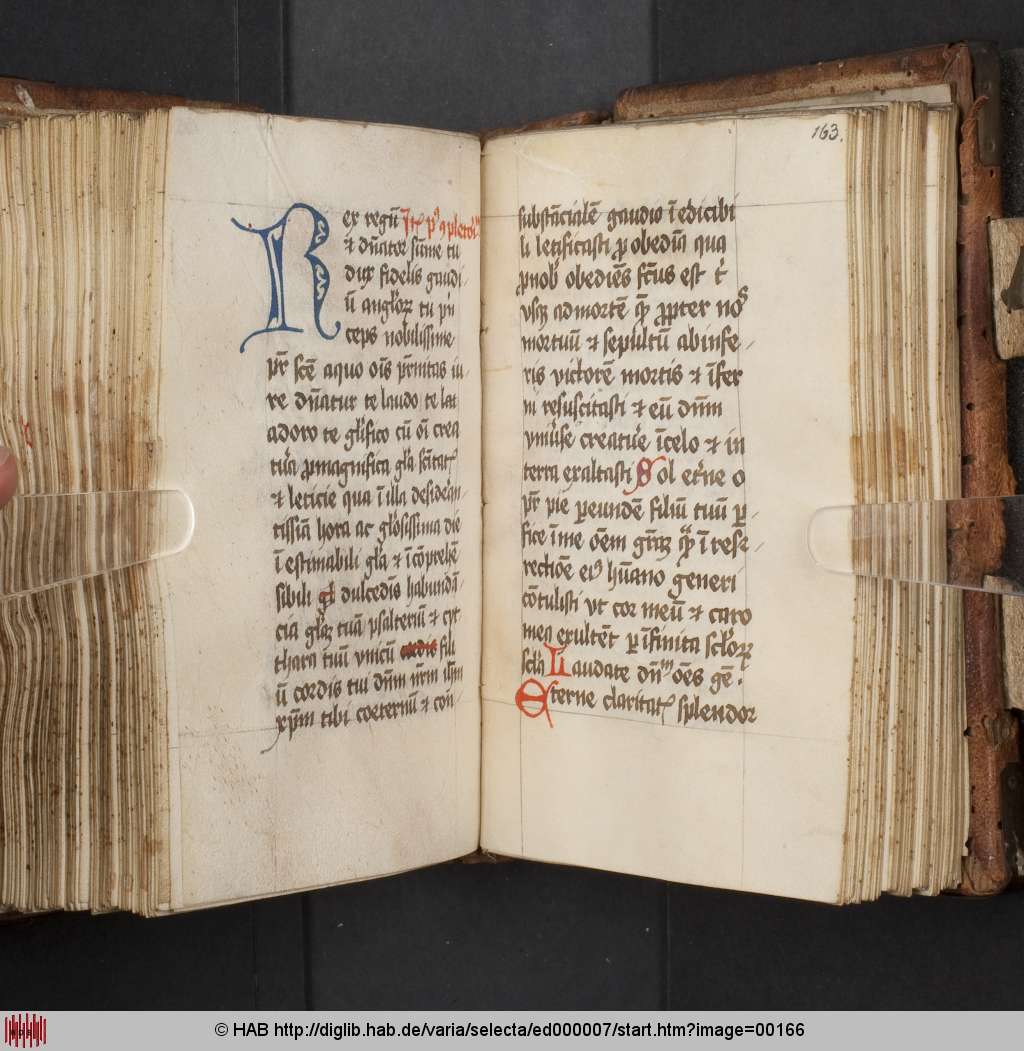 Rex regū Itē pꝰ ꝯpletoꝛ
⁊ dn̄ator sūme tu
dux fidelis gaudi
ū anglꝛoꝝ tu pͥn
ceps nobilissime
pr̄ scē a quo oīs pr̄nitas iu
re dn̄atur te laudo te
adoro te glīfico cū oī crea
tͥa ꝓ magnifica glā
⁊ leticie qua ī illa desideꝛan
tissīa hora ac glōsissima die
ī estimabili glā ⁊ īcōprehē
sibili gl dulcedīs habundā
cia tuā psalteriū ⁊ cyt
thara tuū vnicū cordis fili
ū cordis tui dn̄m nr̄m ih̄m
xp̄m tibi coeternū ⁊ con
163.
substācialē gaudio īedicibi
li letificasti ꝓ obedīa qua
ꝓ nob obediēs fc̄us est tͥ
vsqꝫ ad mortē ꝓpter noˢ
mortuū ⁊ sepultū ab infe
ris victorē mortis ⁊ īfer
ni resuscitasti ⁊ eū dn̄m
vniūse creatuͬe ī celo ⁊ in
terra exaltasti Sol etn̄e o
pr̄ pie ꝑ eundē filiū tuū ꝑ
fice ī me oēm ī resr̄
rectiōe eiꝰ hūano generi
cōtulisti vt cor meū ⁊ caro
mea exultēt ꝑ īfinita sclōꝝ
scl̄a Laudate dn̄m oēs gē.
Eterne claritatꝭ splendor
© HAB http://diglib.hab.de/varia/selecta/ed000007/start.htm?image=00166